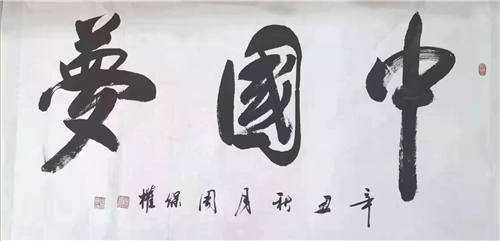 中國夢
辛丑秋月周保權